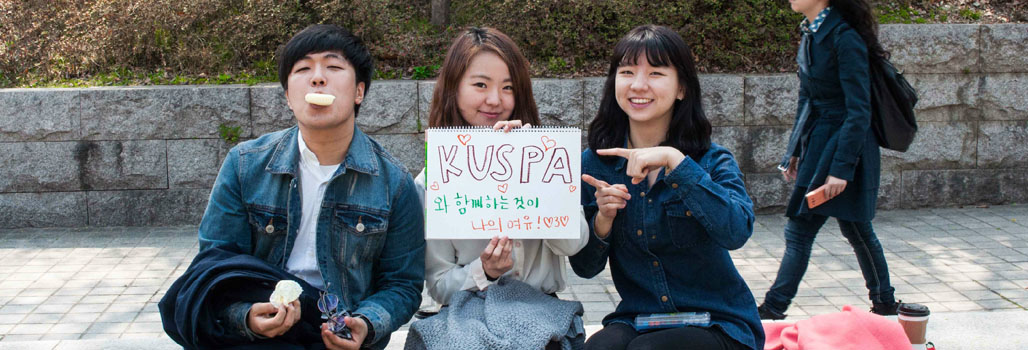 KUSPA
와 함께하는 것이
나의 여유!♡3♡